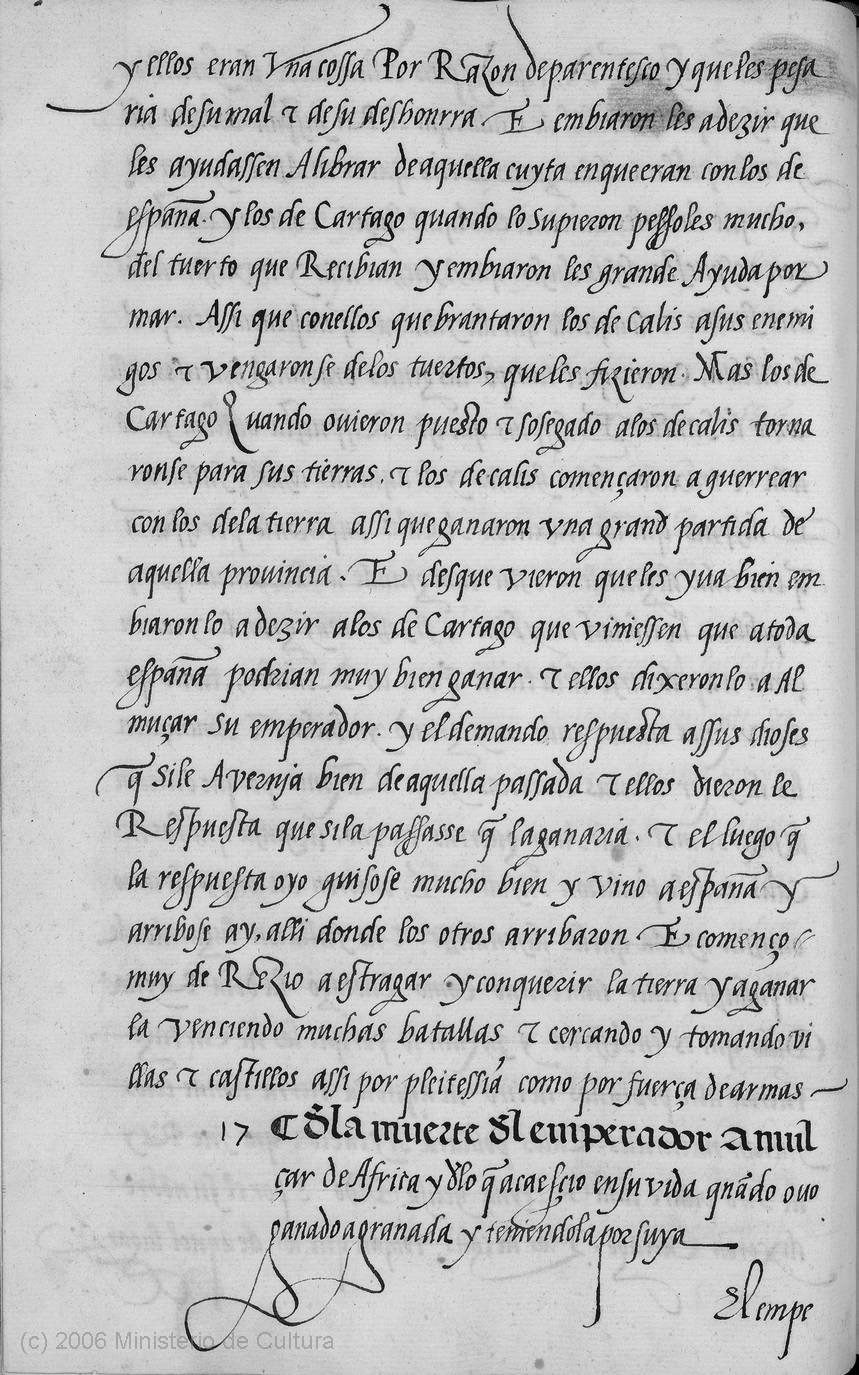 y ellos eran Vna cossa Por Razon deparentesco y que les pesa
ria desu mal τ desu deshonrra. E embiaron les adezir que
les ayudassen A librar deaquella cuyta enque eran conlos de
españa. y los de Cartago quando lo supieron pessoles mucho,
del tuerto que Recibian y embiaron les grande Ayuda por
mar. Assi que conellos quebrantaron los de Calis asus enemi
gos τ vengaronse delos tuertos, que les fizieron. Mas los de
Cartago Quando ovieron puesto τ sosegado alos de calis torna
ronse para sus tierras. τ los de calis començaron a guerrear
con los dela tierra assi que ganaron vna grand partida de
aquella provincia. E desque vieron que les yva bien em
biaronlo adezir alos de Cartago que viniessen que atoda
españa podrian muy bien ganar. τ ellos dixeronlo a Al
muçar su emperador. y el demando respuesta assus dioses
q̃ sile Avernja bien deaquella passada τ ellos dieron le
Respuesta que sila passasse q̃ la ganaria. τ el luego q̃
la respuesta oyo guisose mucho bien y vino aespaña y
arribose ay, alli donde los otros arribaron. E començo
muy de Rezio a estragar y conquerir la tierra y aganar
la venciendo muchas batallas τ cercando y tomando vi
llas τ castillos assi por pleitessia como por fuerça dearmas
17 ¶ đla muerte đl emperador Amil
çar de Africa y đlo q̃ acaesçio ensu vida quãdo ovo
ganado a granada y teniendola por suya
El empe
(c) 2006 Ministerio de Cultura